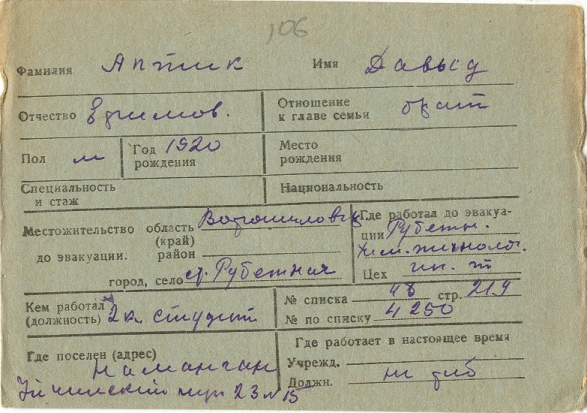 106
Фамилия Аптик Имя Давыд
Отчество Ефимов. Отношение к главе семьи брат
Пол м Год рождения 1920 Место рождения
Специальность и стаж Национальность
Местожительство область Ворошиловгр
(край)
до эвакуации. район
город, село ст. Рубежная
Где работал до эвакуа-
ции Рубежн.
хим. технолог.
Цех ин. т
Кем работал 2 к студент
(должность)
№ списка 48 стр. 219
№ по списку 4250
Где поселен (адрес) Наманган
Уйчинский 23 № 15
Где работает в настоящее время
Учрежд.
Должн.